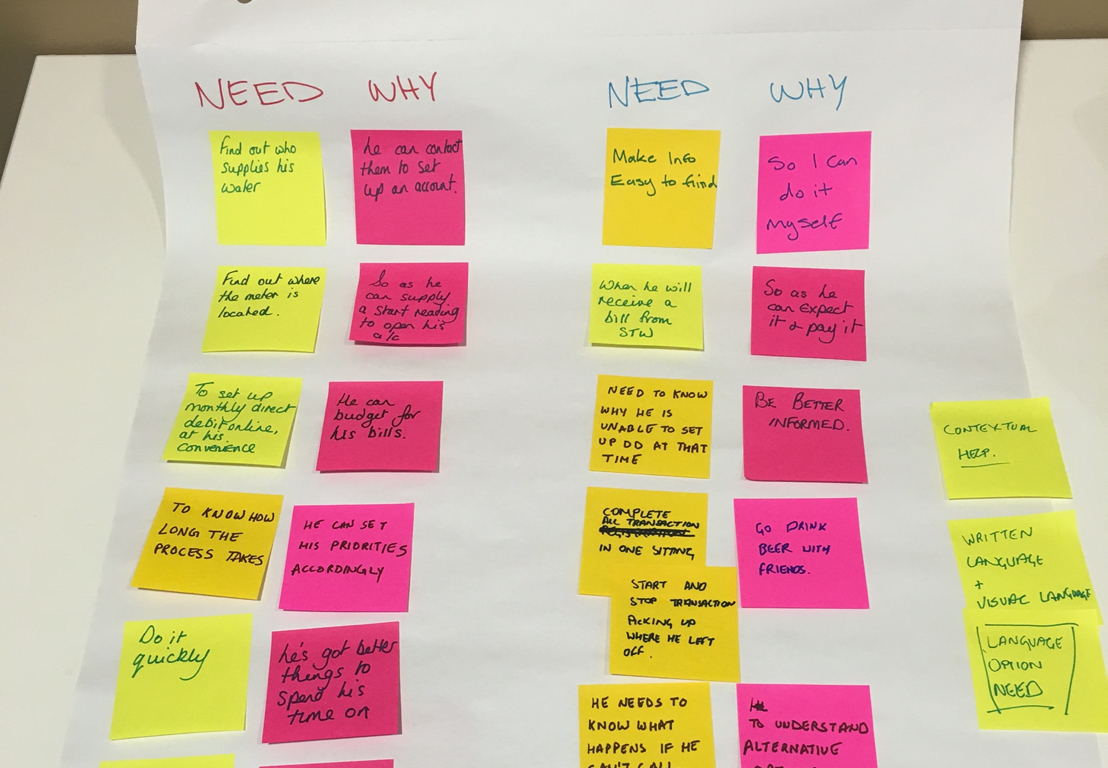 NEED WHY
Find out who
supplies his
water
he can contact
them to set
up an account.
Find out where
the meter is
located.
So as he
can supply
a start reading
to open his
a/c
To set up
monthly direct
debit online,
at his
convenience
He can
budget for
his bills.
TO KNOW HOW
LONG THE
PROCESS TAKES
HE CAN SET
HIS PRIORITIES
ACCORDINGLY
Do it
quickly
he's got better
things to
spend his
time on
NEED WHY
Make Info
Easy to find
So I can
do it
myself
When he will
receive a
bill from
STW
So as he
can expect
it & pay it
NEED TO KNOW
WHY HE IS
UNABLE TO SET
UP DD AT THAT
TIME
BE BETTER
INFORMED.
COMPLETE
ALL TRANSACTION
IN ONE SITTING
START AND
STOP TRANSACTION
PICKING UP
WHERE HE LEFT
OFF.
GO DRINK
BEER WITH
FRIENDS.
HE NEEDS TO
KNOW WHAT
HAPPENS IF HE
CAN'T CALL
TO UNDERSTAND
ALTERNATIVE
CONTEXTUAL
HELP.
WRITTEN
LANGUAGE
+
VISUAL LANGUAGE
LANGUAGE
OPTION
NEED